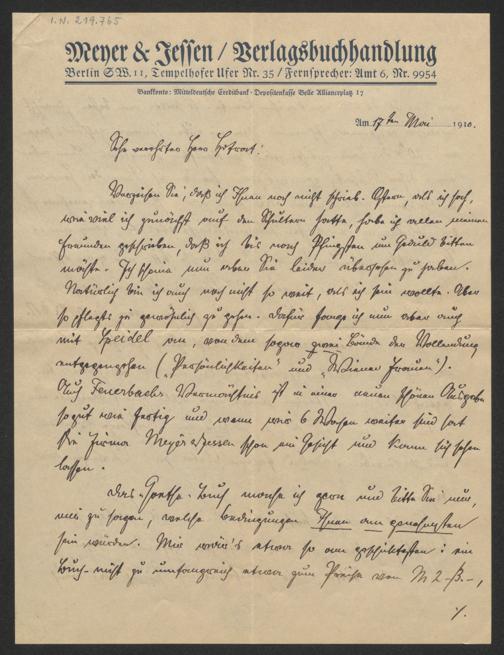 I.N. 219.765
Meyer & Jessen / Verlagsbuchhandlung
Berlin SW. 11, Tempelhofer Ufer Nr. 35 / Fernsprecher: Amt 6, Nr. 9954
Bankkonto: Mitteldeutsche Creditbank · Depositenkasse Belle Allianceplatz 17
Am 17ten Mai 1910.
Sehr verehrter Herr Hofrat!
Verzeihen Sie, daß ich Ihnen noch nicht schrieb. Ostern, als ich sah,
wie viel ich zunächst auf den Schultern hatte, habe ich allen meinen
Freunden geschrieben, daß ich bis nach Pfingsten um Geduld bitten
möchte. Ich scheine nun aber Sie leider übersehen zu haben.
Natürlich bin ich auch noch nicht so weit, als ich sein wollte. Aber
so pflegt es gewöhnlich zu gehen. Dafür fange ich nun aber auch
mit Speidel an, von dem sogar zwei Bände der Vollendung
entgegengehen („Persönlichkeiten" und „Wiener Frauen").
Auch Feuerbachs Vermächtnis ist in einer neuen schönen Ausgabe
so gut wie fertig und wenn wir 6 Wochen weiter sind hat
die Firma Meyer & Jessen schon ein Gesicht und kann sich sehen
lassen.
Das Goethe-Buch mache ich gern und bitte Sie nun,
mir zu sagen, welche Bedingungen Ihnen am genehmsten
sein würden. Mir wär's etwa so am geschicktesten: ein
Buch nicht zu umfangreich etwa zum Preise von M 2-3.-,
/.